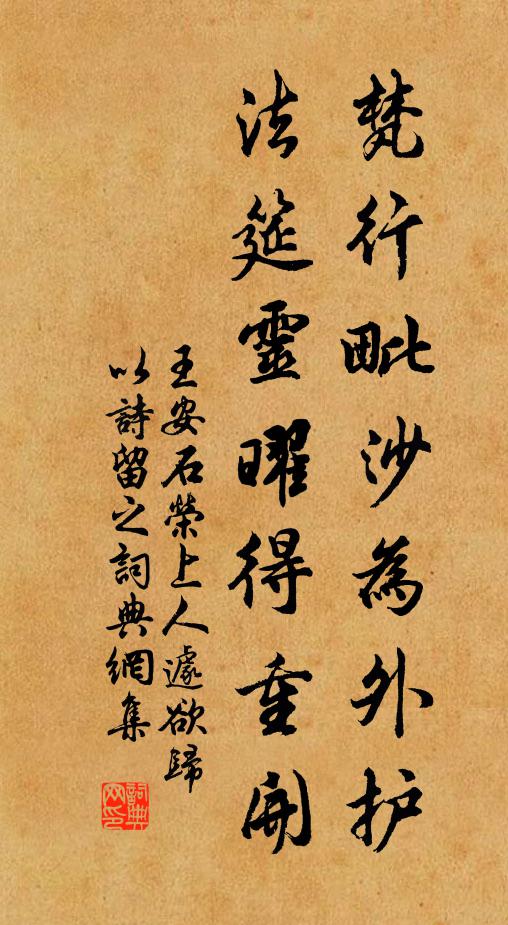 梵行毗沙為外护
法筵靈曜得重開
王安石榮上人遽欲歸
以詩留之詞典網集
詞典网印